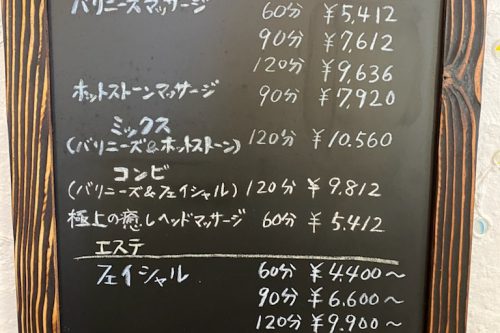 バリニーズマッサージ 60分 ¥5,412
90分 ¥7,612
120分 ¥9,636
ホットストーンマッサージ 90分 ¥7,920
ミックス
(バリニーズ&ホットストーン) 120分 ¥10.560
コンビ
(バリニーズ&フェイシャル) 120分 ¥9,812
極上の癒しヘッドマッサージ 60分 ¥5.412
エステ
フェイシャル 60分 ¥4,400〜
90分 ¥6.600〜
120分 ¥9.900〜